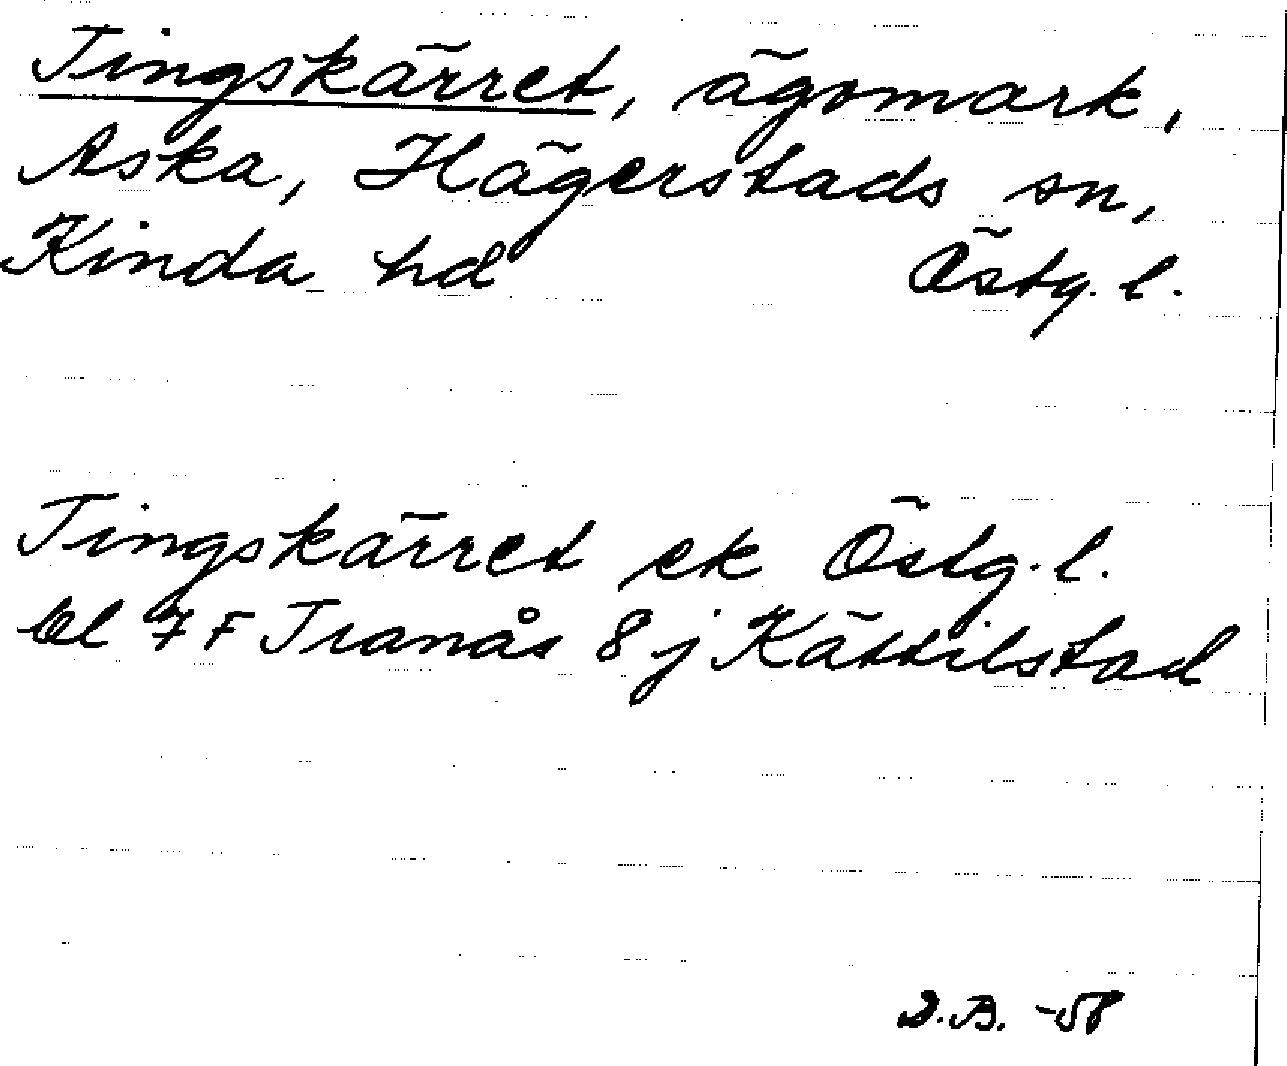 Tingskärret, ägomark,
Aska, Hägerstads sn,
Kinda hd Östg. l.
Tingskärret ek Östg. l.
bl 7 F Tranås 8 j Kättilstad
D.B. -58